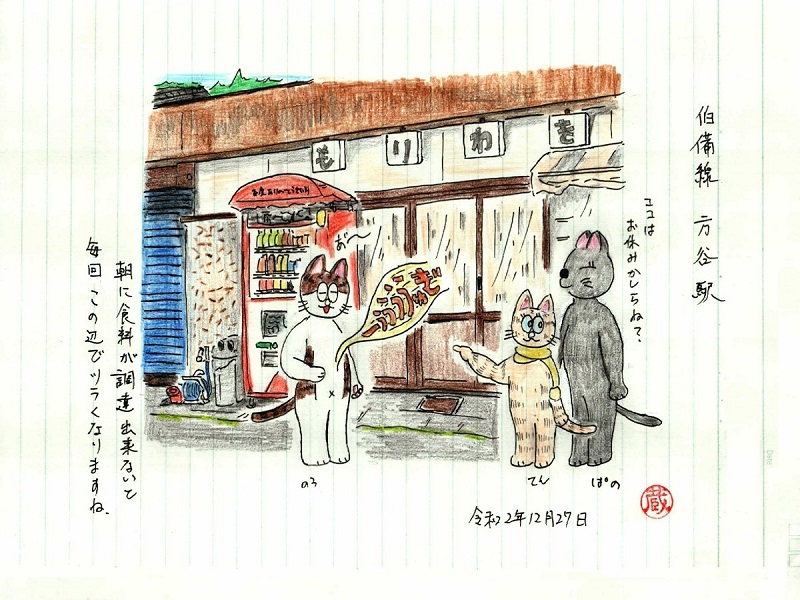 伯備線 方谷駅
ココは
お休みかしらねぇ?
もりわき
お〜
ぐうううぅぅ
朝に食料が調達出来ないと
毎回この辺でツラくなりますね。
のろ
てん
ぱの
令和2年12月27日
蔵